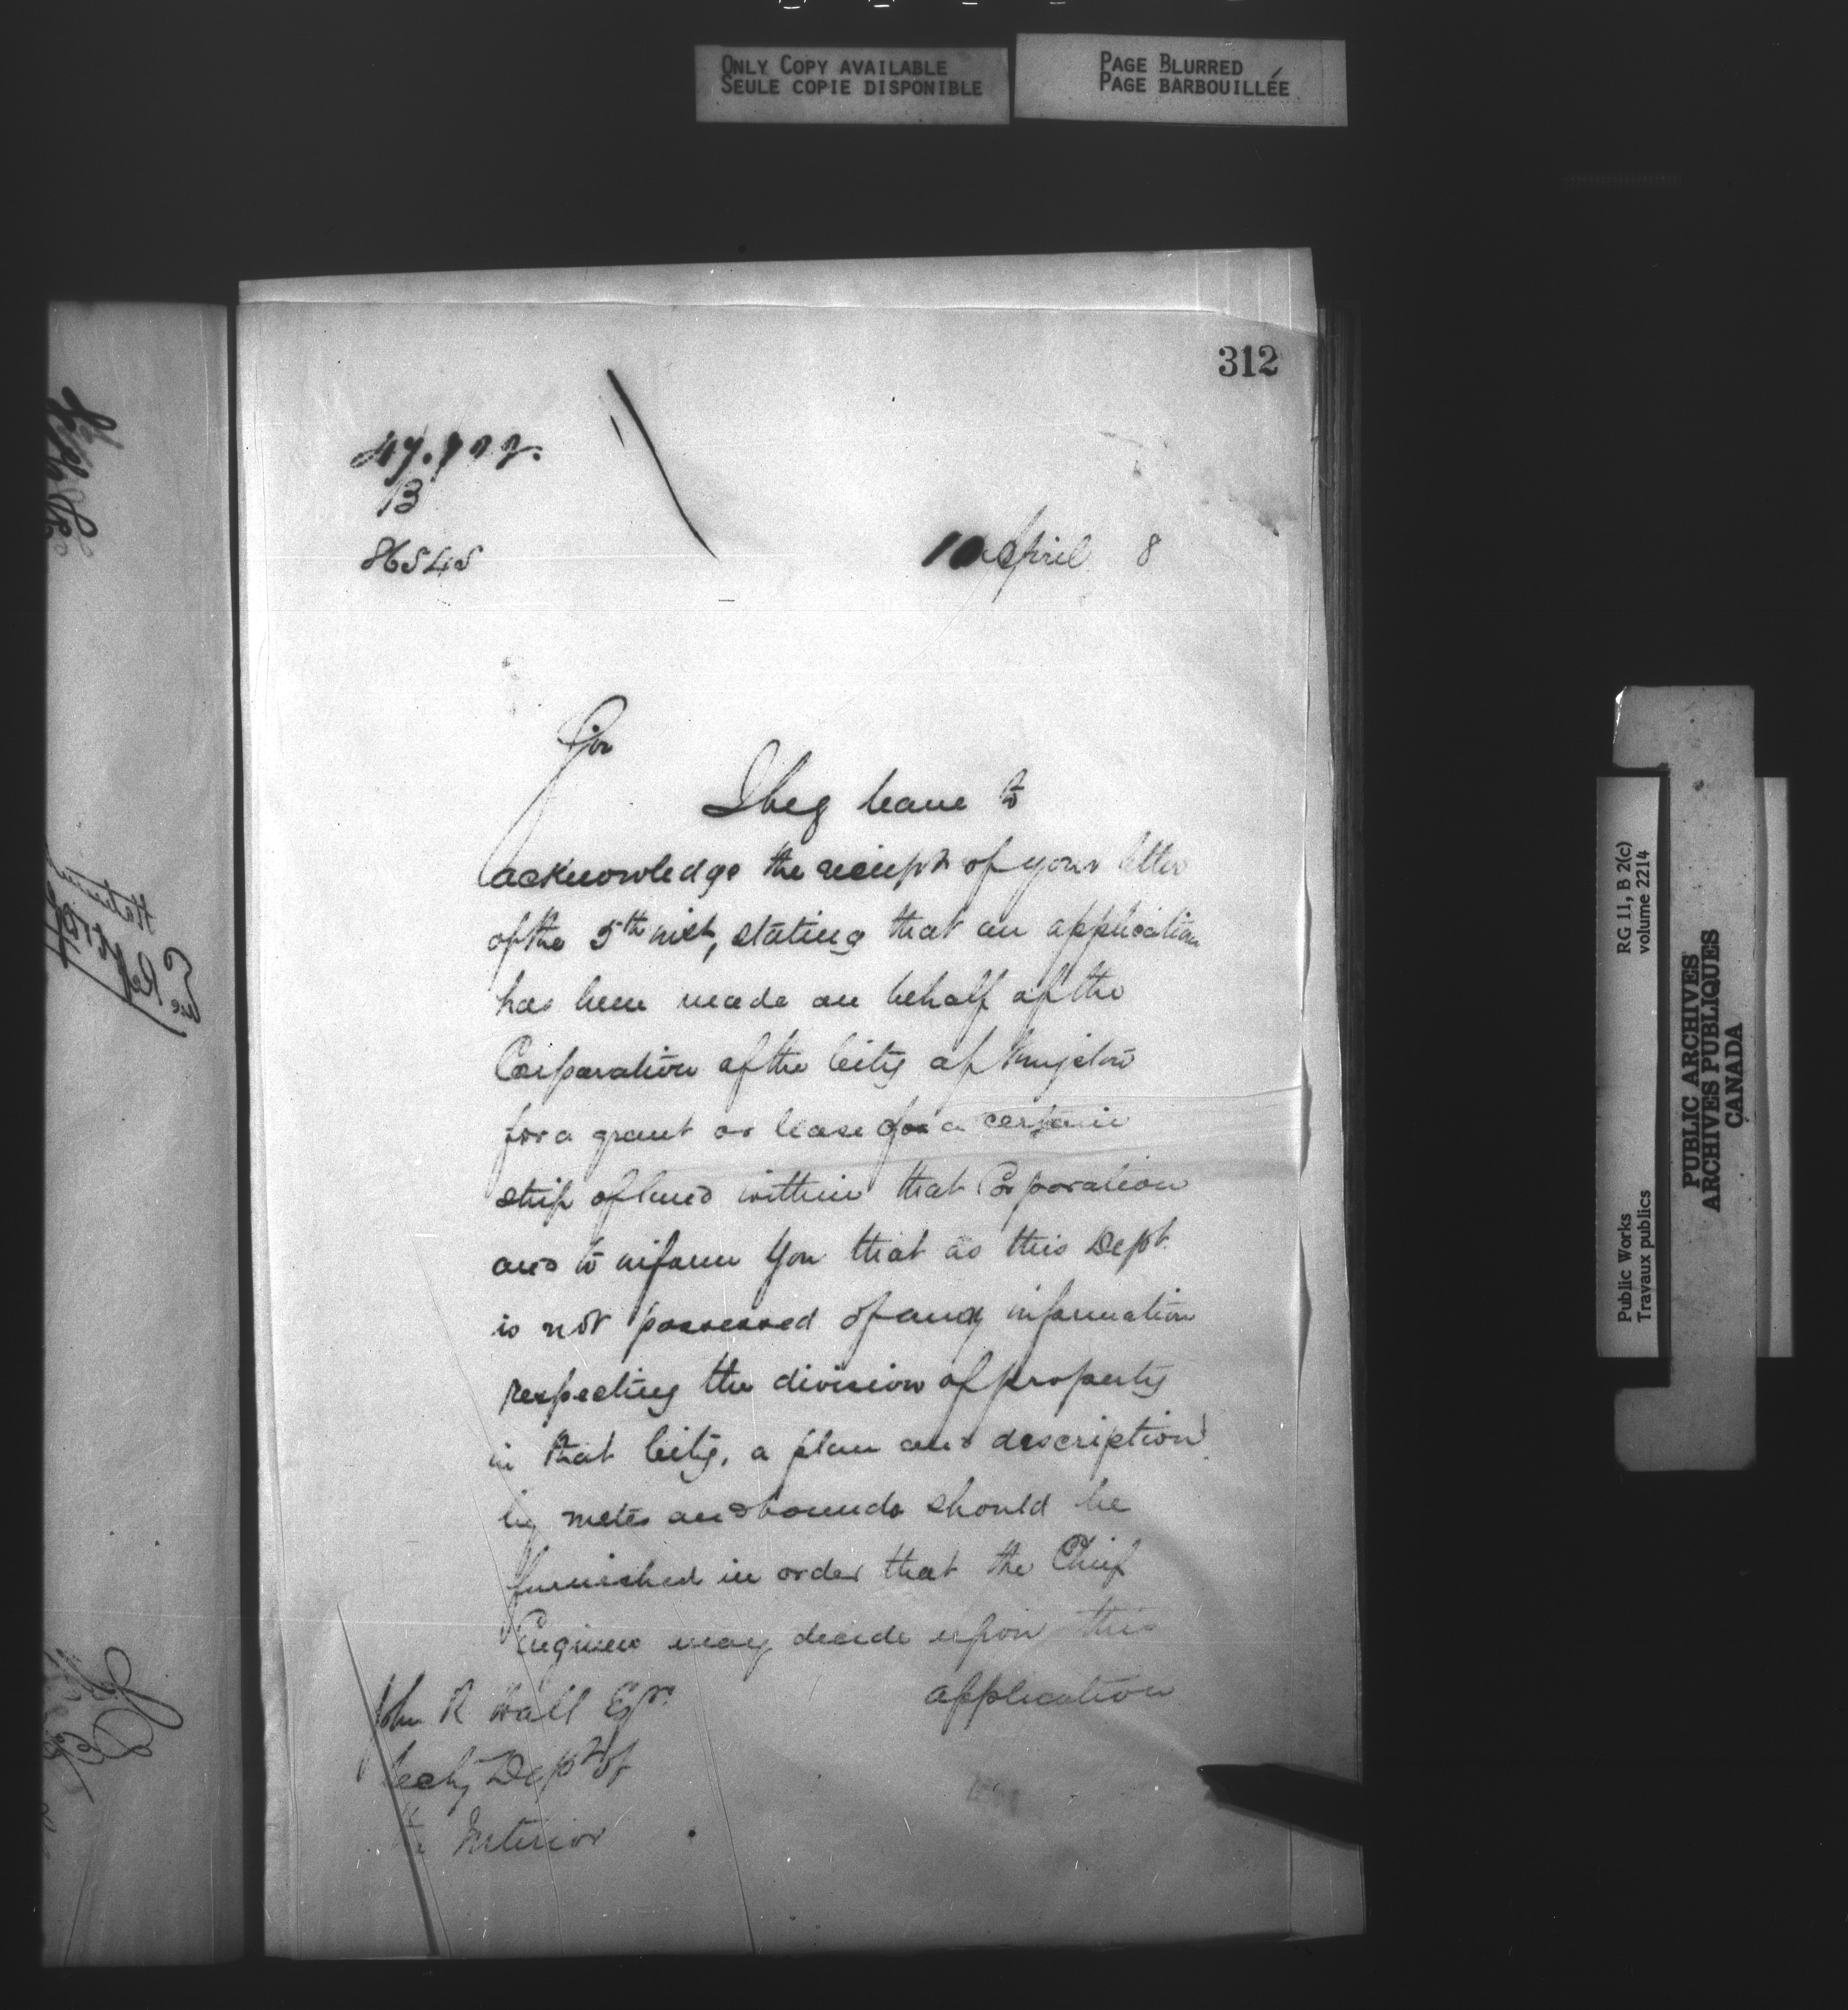 ONLY COPY AVAILABLE
SEULE COPIE DISPONIBLE
PAGE BLURRED
PAGE BARBOUILLÉE
312
B
86545
10 April 8
Sir
I beg leave to
acknowledge the receipt of your letter
of the 5th inst, stating that an application
has been made on behalf of the
Corporation of the City of Kingston
for a grant or lease of a certain
strip of land within that Corporation
and to inform you that as this Dept.
is not possessed of any information
respecting the division of property
in that City, a plan and description
by metes and bounds should be
furnished in order that the Chief
Engineer may decide upon this
application
John R Hall Esqr.
Secty Dept of
the Interior
Public Works
Travaux publics
RG 11, B 2(c)
volume 2214
PUBLIC ARCHIVES
ARCHIVES PUBLIQUES
CANADA